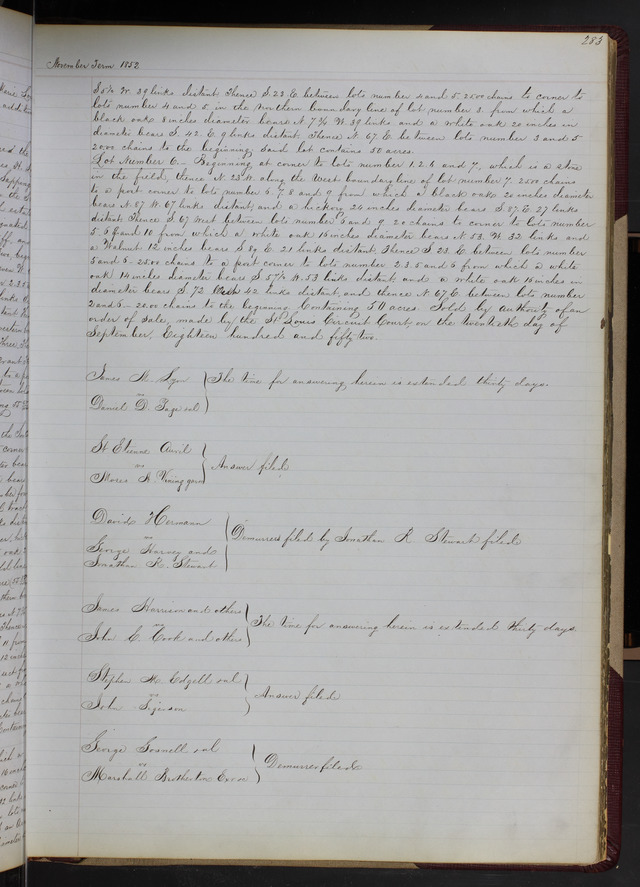 283
November Term 1852
39 links distant Thence S. 23 E. between lots number 4 and 5. 25.00 chains to corner to
lots number 4 and 5, in the Northern boundary line of lot number 3. from which a
black oak 8 inches diameter bears N 7 3/4 W. 39 links and a white oak 20 inches in
diameter bears S. 42. E. 9 links distant. Thence N. 67 E. between lots number 3 and 5
20.00 chains to the beginning Said lot contains 50 acres.
Lot Number 6.. Beginning at corner to lots number 1. 2. 6 and 7, which is a stone
in the field, thence N. 23 W. along the West boundary line of lot number 7. 25.00 chains
to a post corner to lots number 6. 7. 8 and 9 from which a black oak 20 inches diameter
bears N. 87 W 67 links distant, and a hickory 24 inches diameter bears S. 87 E. 27 links
distant Thence S. 67 West between lots number 6 and 9 20 chains to corner to lots number
5. 6. 9 and 10 from which a white oak 15 inches diameter bears N. 53. W. 32 links and
a Walnut 12 inches bears S. 89 E. 21 links distant. Thence S. 23. E. between lots number
5 and 6 - 25.00 chains to a post corner to lots number 2. 3. 5 and 6 from which a white
oak 14 inches diameter bears S. 53 links distant and a white oak 15 inches in
diameter bears S. 72 42 links distant, and thence N. 67. E. between lots number
2 and 6 - 20.00 chains to the beginning Containing 50 acres. Sold by authority of an
order of sale, made by the St Louis Circuit Court, on the twentieth day of
September, Eighteen hundred and fifty two.
James H.
vs
Daniel D. Page et al
The time for answering herein is extended thirty days.
St Etienne Avril
vs
Moses
Answer filed
David Hermann
vs
George Harvey and
Jonathan R. Stewart
Demurrer filed by Jonathan R Stewart filed
James Harrison and others
vs
John C. Cook and others
The time for answering herein is extended thirty days.
Stephen M. Edgell et al
vs
John
Answer filed
George et al
vs
Marshall Brotherton Exor
Demurrer filed